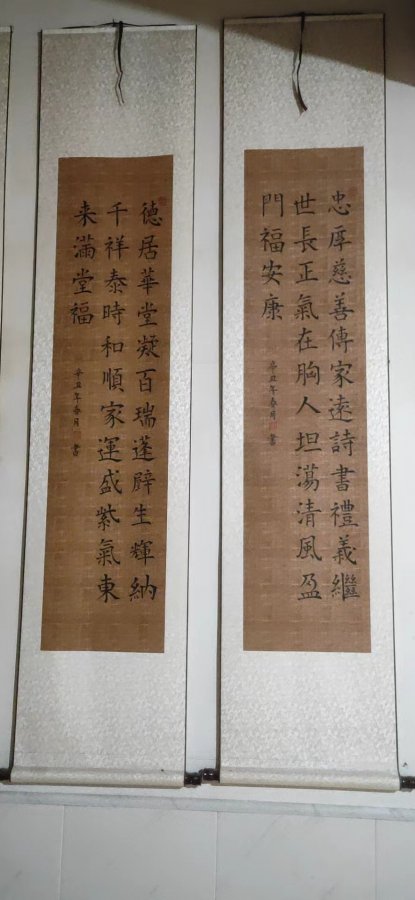 忠厚慈善傳家遠詩書禮義繼
世長正氣在胸人坦蕩清風盈
門福安康
辛丑年春月
書
德居華堂凝百瑞蓬辟生輝納
千祥泰時和順家運盛紫氣東
来滿堂福
辛丑年春月
書